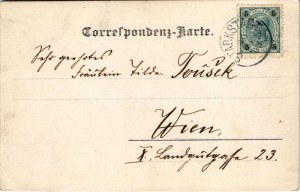 Correspondenz-Karte.
Sehr geehrtes
Fräulein Tilde Toušek
Wien,
X. Landgutgasse 23.